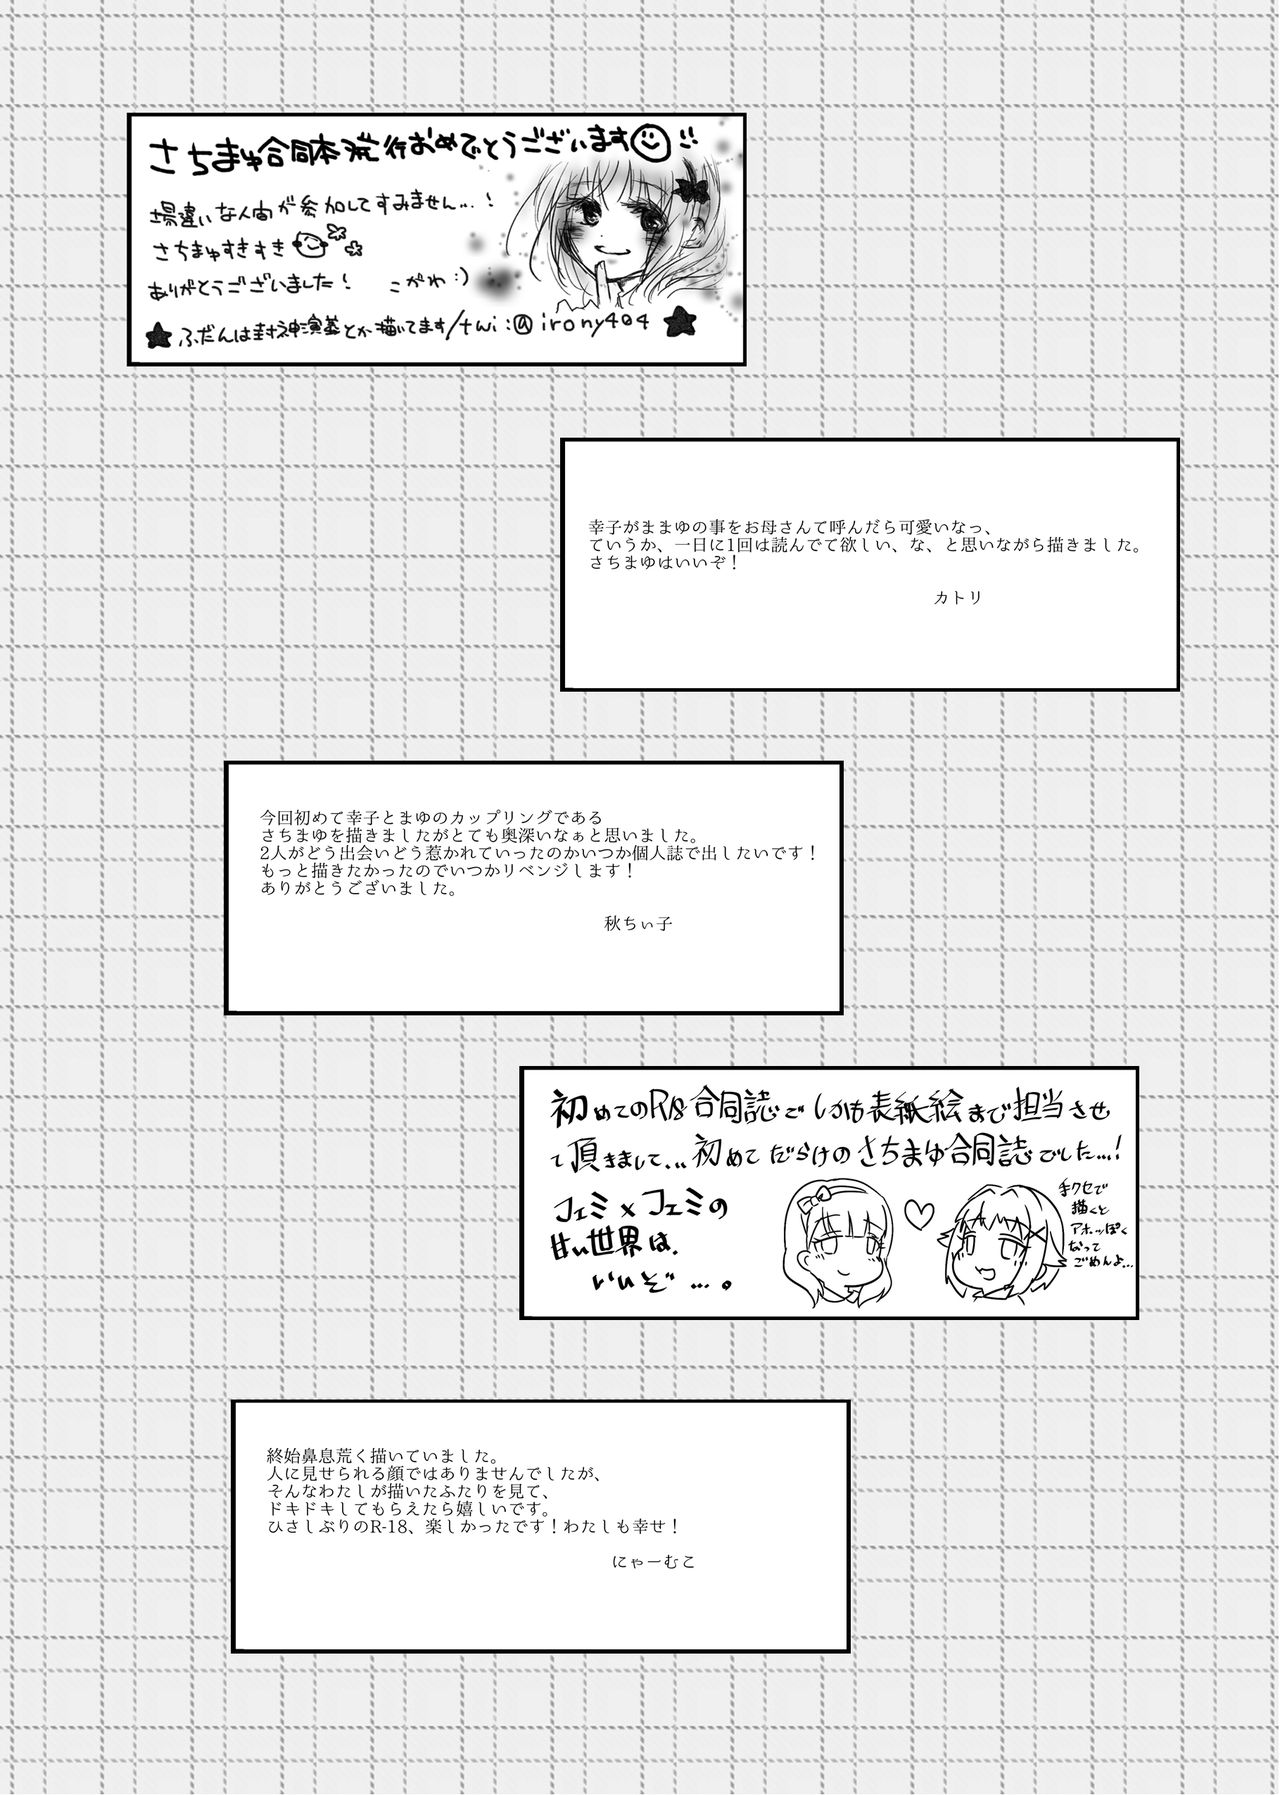 さちまゆ合同本発行おめでとうございます
場違いな人間が参加してすみません…!
さちまゆすきすき
ありがとうございました! こがわ:)
★ふだんは封神演義とか描いてます/twi:@irony404★
幸子がままゆの事をお母さんて呼んだら可愛いなっ、
ていうか、一日に1回は読んでて欲しい、な、と思いながら描きました。
さちまゆはいいぞ！
カトリ
今回初めて幸子とまゆのカップリングである
さちまゆを描きましたがとても奥深いなぁと思いました。
2人がどう出会いどう惹かれていったのかいつか個人誌で出したいです！
もっと描きたかったのでいつかリベンジします！
ありがとうございました。
秋ちぃ子
初めてのR18合同誌でしかも表紙絵まで担当させ
て頂きまして…初めてだらけのさちまゆ合同誌でした…!
フェミ×フェミの
甘い世界は、
いいぞ…。
手クセで
描くと
アホっぽく
なって
ごめんよ…
終始鼻息荒く描いていました。
人に見せられる顔ではありませんでしたが、
そんなわたしが描いたふたりを見て、
ドキドキしてもらえたら嬉しいです。
ひさしぶりのR-18、楽しかったです！わたしも幸せ！
にゃーむこ